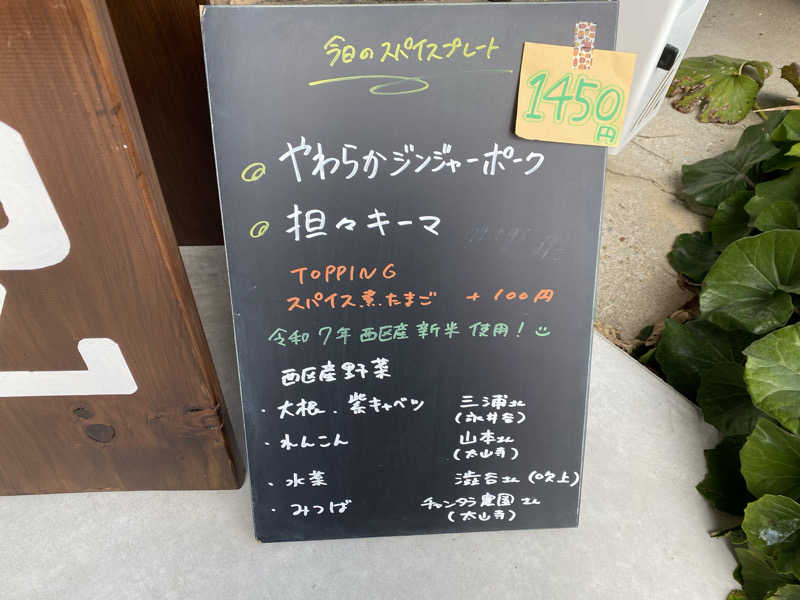 今日のスパイスプレート
1450円
やわらかジンジャーポーク
担々キーマ
TOPPING
スパイス煮たまご +100円
令和7年西区産新米使用!
西区産野菜
・大根、紫キャベツ 三浦さん
(永井谷)
・れんこん 山本さん
(太山寺)
・水菜 澁谷さん(吹上)
・みつば チャンタラ農園さん
(太山寺)